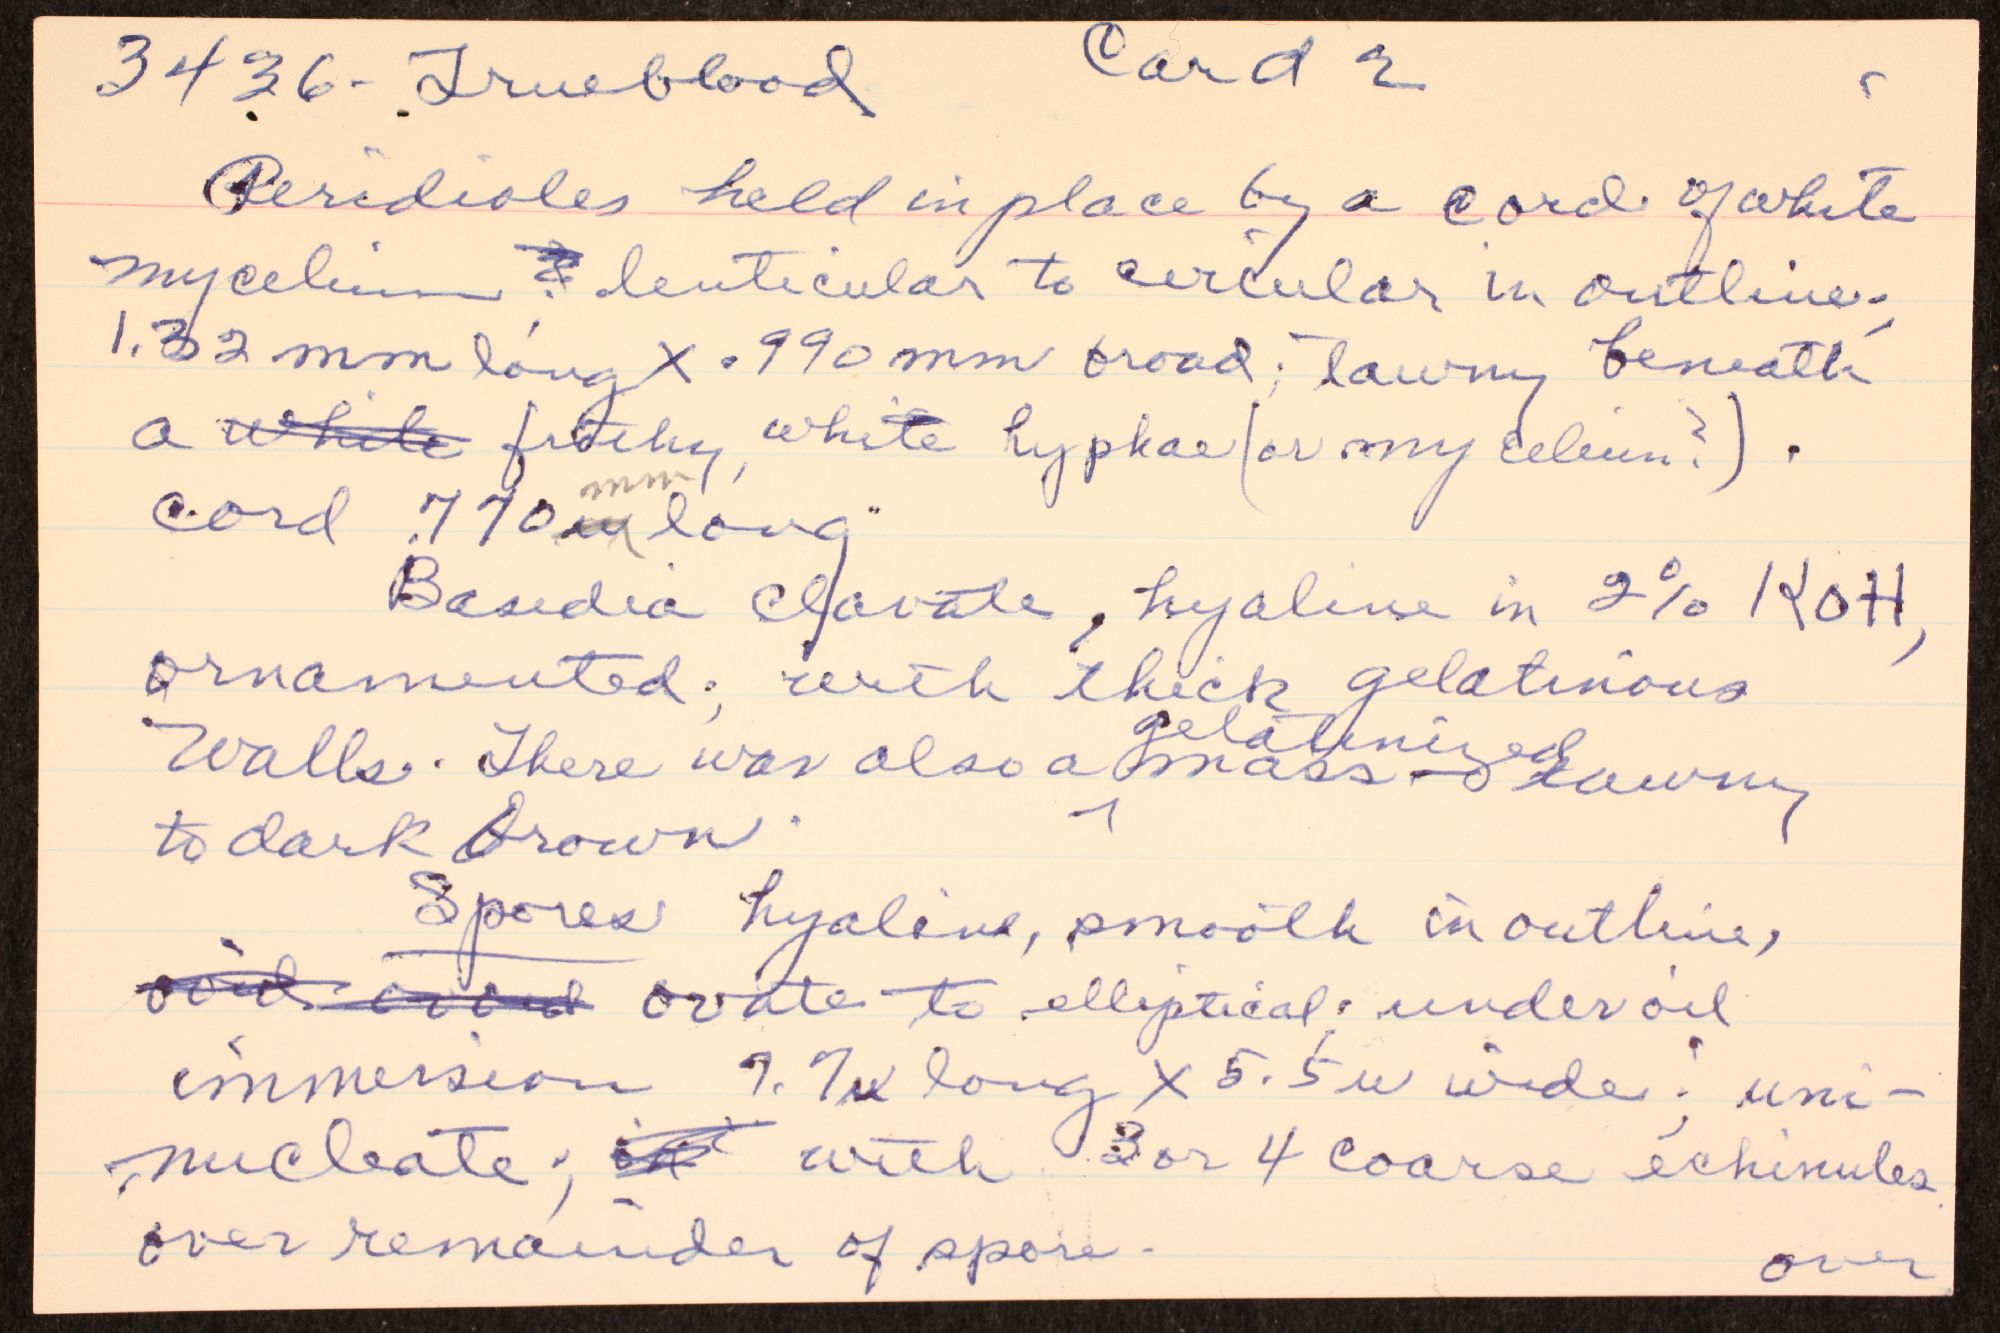 3436- Trueblood Card 2
Peridioles held in place by a cord of white
mycelium lenticular to circular in outline;
1.32 mm long X .990 mm broad; tawny beneath
a white frothy, white hyphae (or mycelium?).
cord .770 mm long
Basidia clavate, hyaline in 2% KOH,
ornamented; with thick gelatinous
Walls. There was also a gelatinized mass - tawny
to dark brown.
Spores hyaline, smooth in outline,
ovoid ovate to elliptical; under oil
immersion 7.7u long X 5.5u wide; uni-
nucleate; with 3 or 4 coarse echinules
over remainder of spore.
over